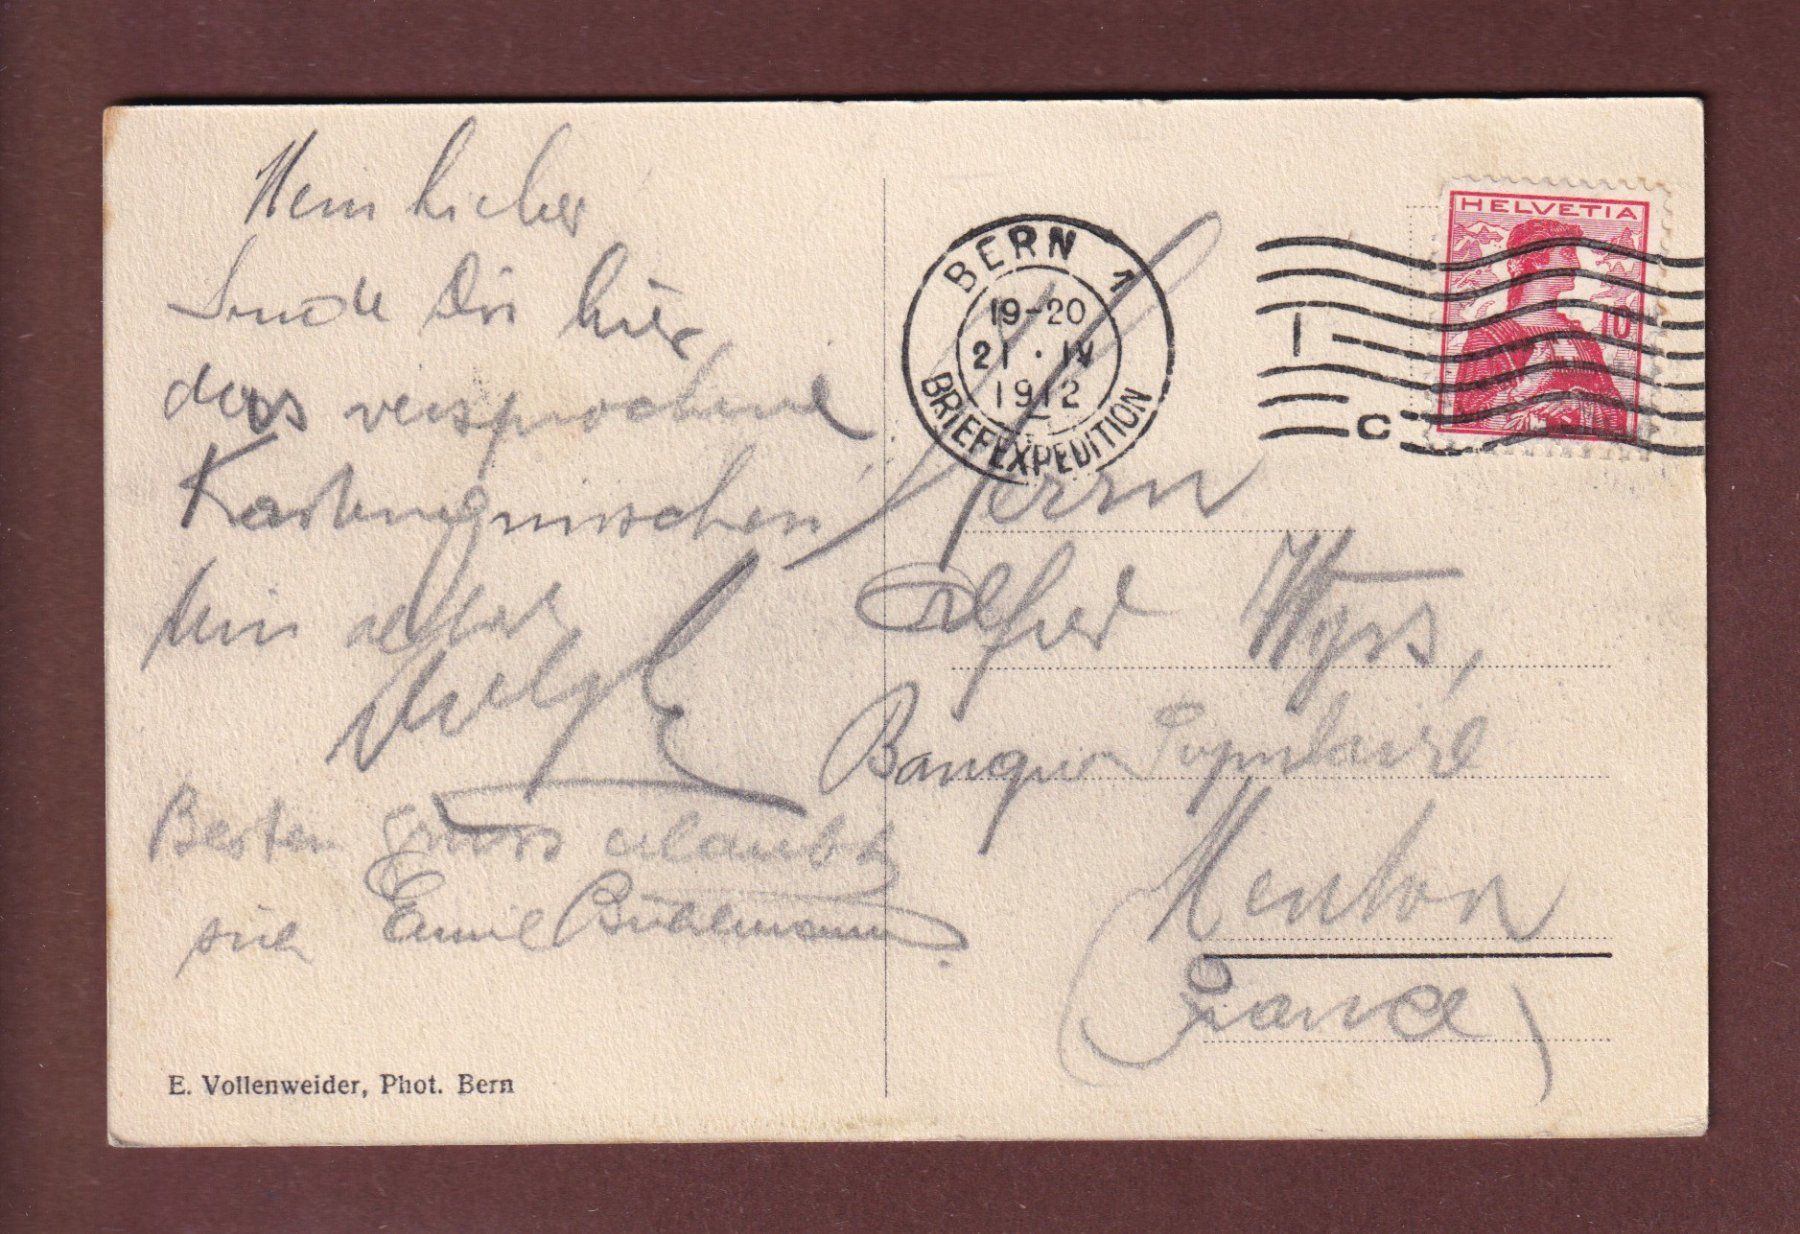 Mein Lieber
Sende Dir hier
das versprochene
Dein alter
Besten Gruss erlaubt
sich Emil Bühlmann.
E. Vollenweider, Phot. Bern
BERN 1
19-20
21 · IV
1912
BRIEFEXPEDITION
I
C
HELVETIA
10
Herrn
Alfred Wyss,
Banque Populaire
Menton
(France)